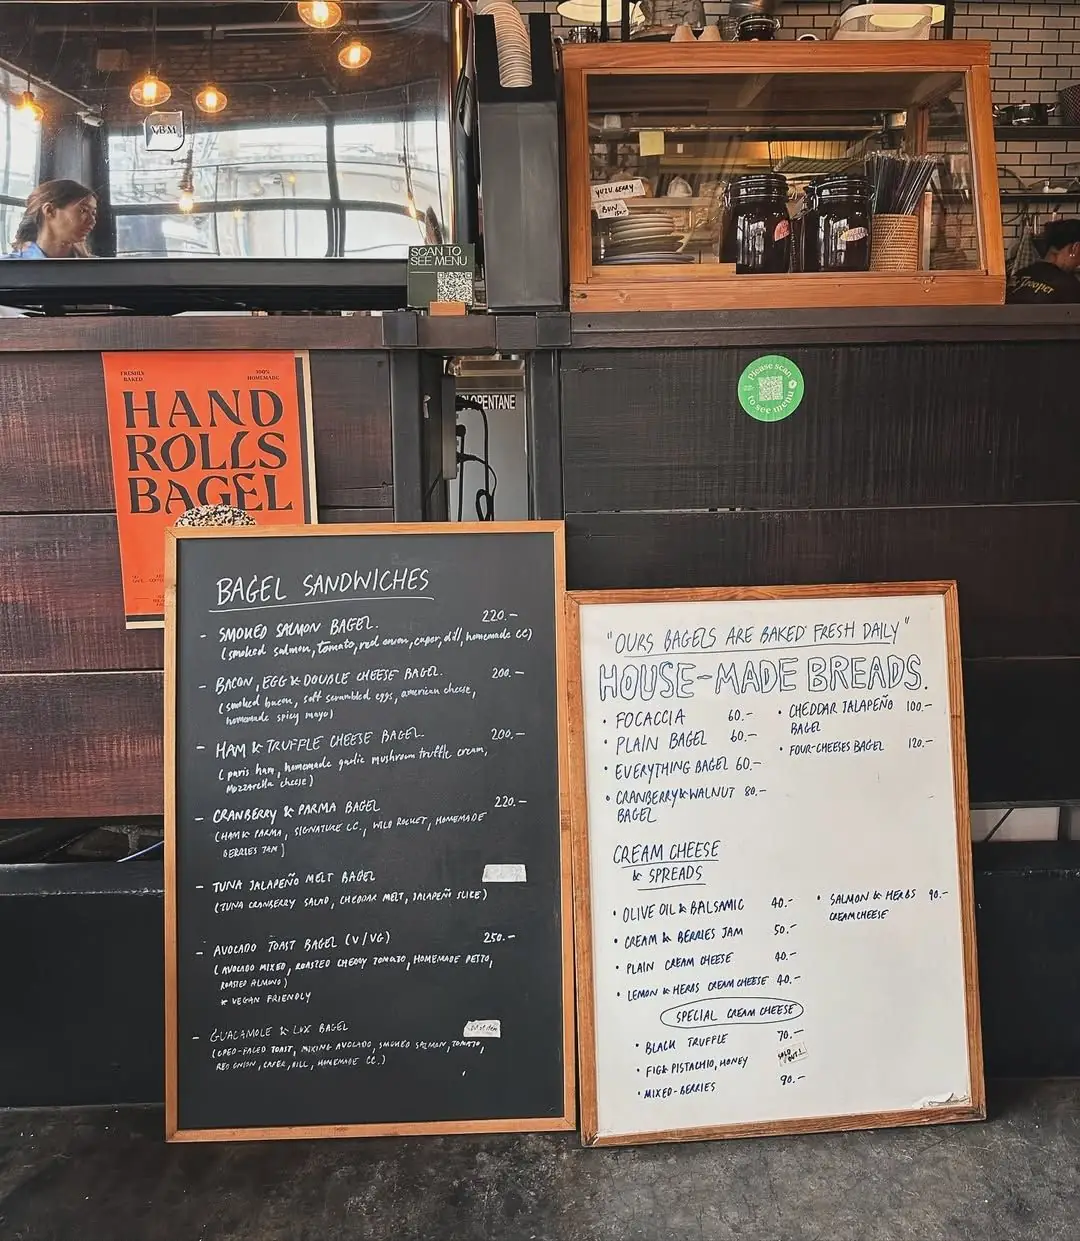 VBM
SCAN TO
SEE MENU
YUZU GEARY
BUN
Please scan
to see menu
FRESHLY
BAKED
100%
HOMEMADE
HAND
ROLLS
BAGEL
LOPENTANE
BAGEL SANDWICHES
- SMOKED SALMON BAGEL. 220.-
(smoked salmon, tomato, red onion, caper, dill, homemade cc)
- BACON, EGG & DOUBLE CHEESE BAGEL. 200.-
(smoked bacon, soft scrambled eggs, american cheese,
homemade spicy mayo)
- HAM & TRUFFLE CHEESE BAGEL. 200.-
(paris ham, homemade garlic mushroom truffle cream,
Mozzarella cheese)
- CRANBERRY & PARMA BAGEL 220.-
(HAM & PARMA, SIGNATURE CC., WILD ROCKET, HOMEMADE
BERRIES JAM)
- TUNA JALAPEÑO MELT BAGEL
(TUNA CRANBERRY SALAD, CHEDDAR MELT, JALAPEÑO SLICE)
- AVOCADO TOAST BAGEL (V/VG) 250.-
(AVOCADO MIXED, ROASTED CHERRY TOMATO, HOMEMADE PESTO,
ROASTED ALMOND)
* VEGAN FRIENDLY
- GUACAMOLE & LOX BAGEL
(OPED-FACED TOAST, MIXING AVOCADO, SMOKED SALMON, TOMATO,
RED ONION, CAPER, DILL, HOMEMADE CC.)
"OURS BAGELS ARE BAKED FRESH DAILY"
HOUSE-MADE BREADS.
• FOCACCIA 60.-
• PLAIN BAGEL 60.-
• EVERYTHING BAGEL 60.-
• CRANBERRY & WALNUT 80.-
BAGEL
• CHEDDAR JALAPEÑO 100.-
BAGEL
• FOUR-CHEESES BAGEL 120.-
CREAM CHEESE
& SPREADS
• OLIVE OIL & BALSAMIC 40.-
• CREAM & BERRIES JAM 50.-
• PLAIN CREAM CHEESE 40.-
• LEMON & HERBS CREAM CHEESE 40.-
• SALMON & HERBS 90.-
CREAM CHEESE
SPECIAL CREAM CHEESE
• BLACK TRUFFLE 70.-
• FIG & PISTACHIO, HONEY SOLD
OUT!
• MIXED-BERRIES 90.-